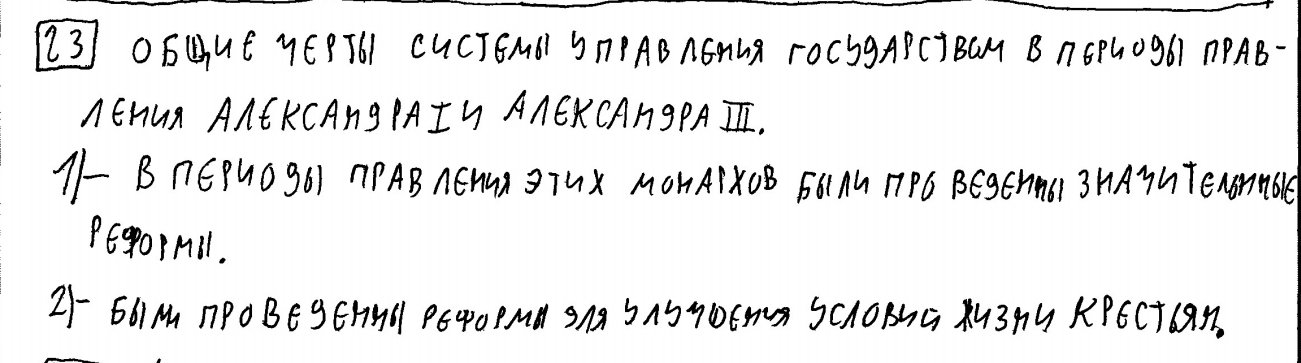 23 ОБЩИЕ ЧЕРТЫ СИСТЕМЫ УПРАВЛЕНИЯ ГОСУДАРСТВОМ В ПЕРИОДЫ ПРАВ-
ЛЕНИЯ АЛЕКСАНДРА I И АЛЕКСАНДРА III.
1)– В ПЕРИОДЫ ПРАВЛЕНИЯ ЭТИХ МОНАРХОВ БЫЛИ ПРОВЕДЕННЫ ЗНАЧИТЕЛЬННЫЕ
РЕФОРМЫ.
2)– БЫЛИ ПРОВЕДЕННЫ РЕФОРМЫ ДЛЯ УЛУЧШЕНИЯ УСЛОВИЙ ЖИЗНИ КРЕСТЬЯН.